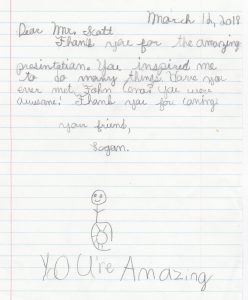 March 12, 2018
Dear Mr. Scott
Thank you for the amazing
presintation. You inspired me
to do many things. Have you
ever met John Cena? You were
awesome! Thank you for coming
your friend,
Logan.
YOU're Amazing